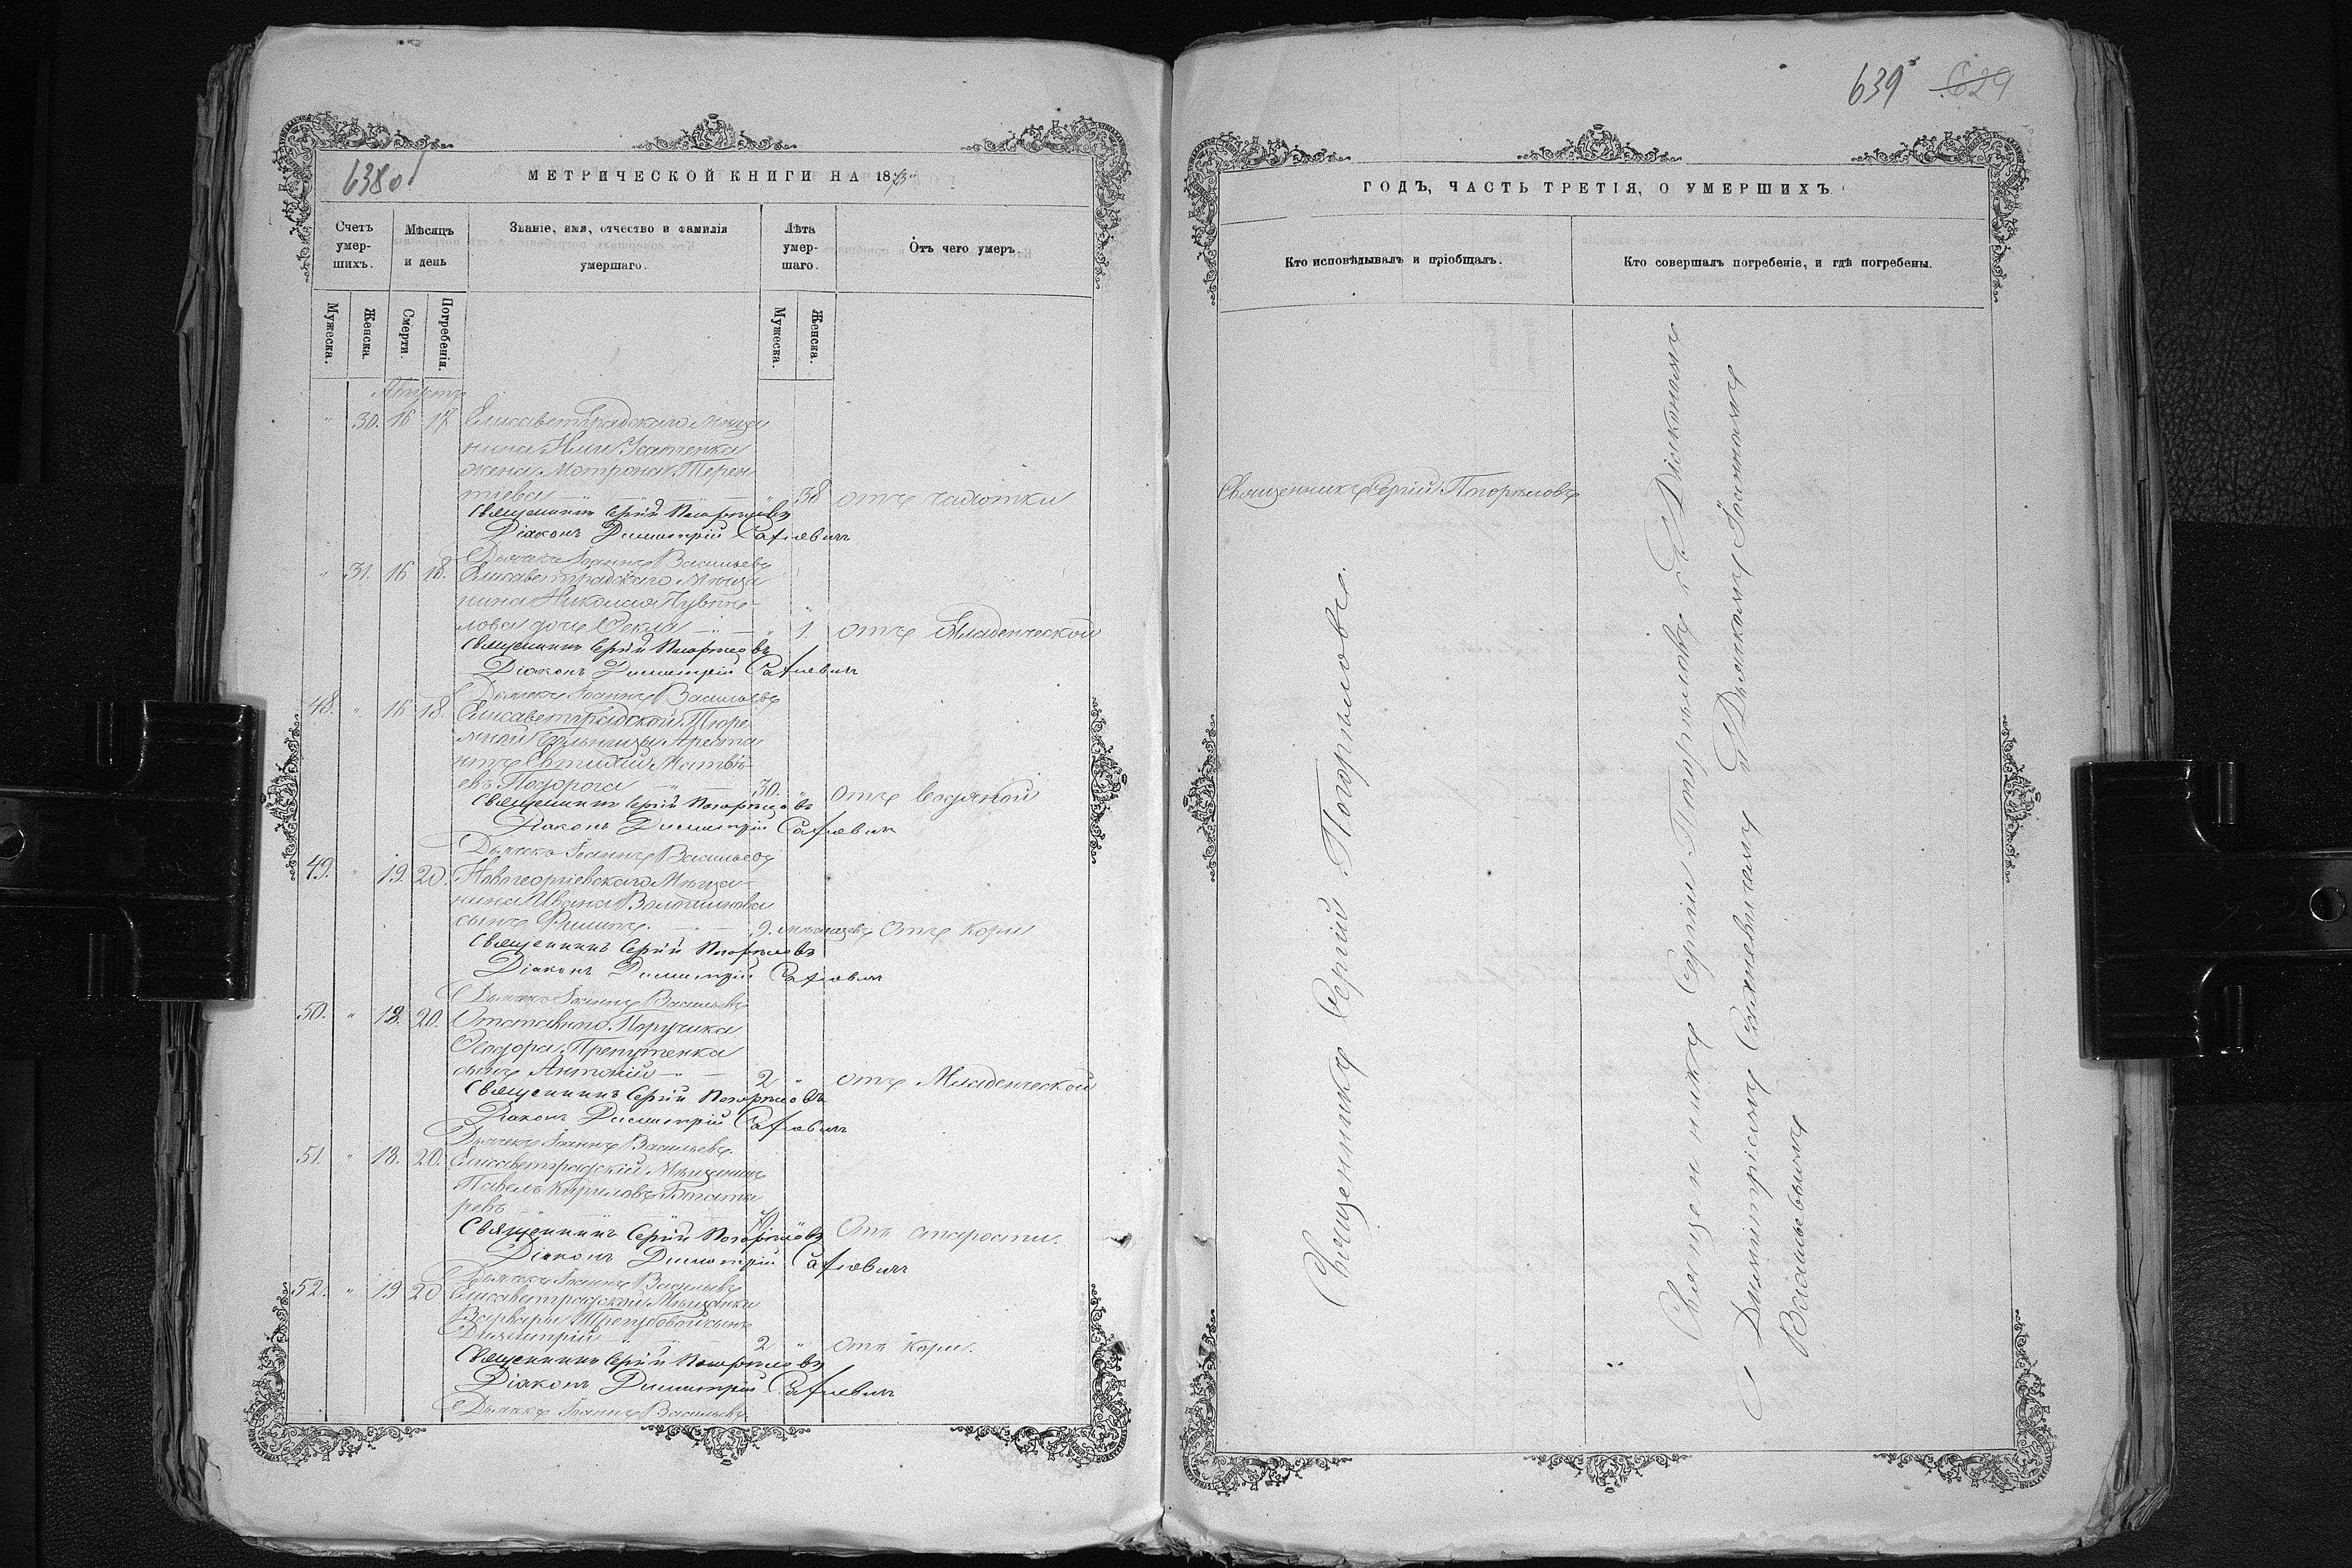 638об
МЕТРИЧЕСКОЙ КНИГИ НА 1873
Счетъ умер-шихъ.
Мѣсяцъ и день
Званіе, имя, отчество и фамилія умершаго.
Лѣта умер-шаго.
Отъ чего умеръ.
Мужеска.
Женска.
Смерти.
Погребенія.
Мужеска.
Женска.
Августъ
" 30. 16 17 Елисаветградскаго Мѣща
нина
жена Мотрона Терен
тіева " 38 отъ чахотки
Священникъ Сергій Погорѣловъ
Діаконъ Димитрій
Дьячекъ Іоаннъ Васильевъ
" 31. 16 18. Елисаветградскаго Мѣща
нина Николая
лова дочь Фекла " 1. отъ Младенческой
Священникъ Сергій Погорѣловъ
Діаконъ Димитрій
Дьячекъ Іоаннъ Васильевъ
48. " 16 18. Елисаветградской Тюре
мной Больницы Ареста
нтъ Евтихій Матвѣ-
евъ Подорога 30. " отъ водяной
Священникъ Сергій Погорѣловъ
Діаконъ Димитрій
Дьячекъ Іоаннъ Васильевъ
49. " 19. 20. Новогеоргіевскаго Мѣща-
нина Ивана
сынъ Филипъ 9. мѣсяцевъ отъ кори
Священникъ Сергій Погорѣловъ
Діаконъ Димитрій
Дьячекъ Іоаннъ Васильевъ
50. " 18. 20. Отставнаго Поручика
Ѳеодора
сынъ Антоній 2 " отъ Младенческой
Священникъ Сергій Погорѣловъ
Діаконъ Димитрій
Дьячекъ Іоаннъ Васильевъ
51. " 18. 20. Елисаветградскій Мѣщанинъ
Павелъ Кириловъ
ревъ 70. Отъ старости.
Священникъ Сергій Погорѣловъ
Діаконъ Димитрій
Дьячекъ Іоаннъ Васильевъ
52. " 19 20 Елисаветградской Мѣщанки
Варвары сынъ
Димитрій 2 " отъ кори.
Священникъ Сергій Погорѣловъ
Діаконъ Димитрій
Дьячекъ Іоаннъ Васильевъ
639 629
ГОДЪ, ЧАСТЬ ТРЕТІЯ, О УМЕРШИХЪ.
Кто исповѣдывалъ и пріобщалъ.
Кто совершалъ погребеніе, и гдѣ погребены.
Священникъ Сергій Погорѣловъ
Священникъ Сергій Погорѣловъ.
Священникъ Сергій Погорѣловъ съ Діакономъ
Димитріемъ и Дьячкомъ Іоанномъ
Васильевымъ